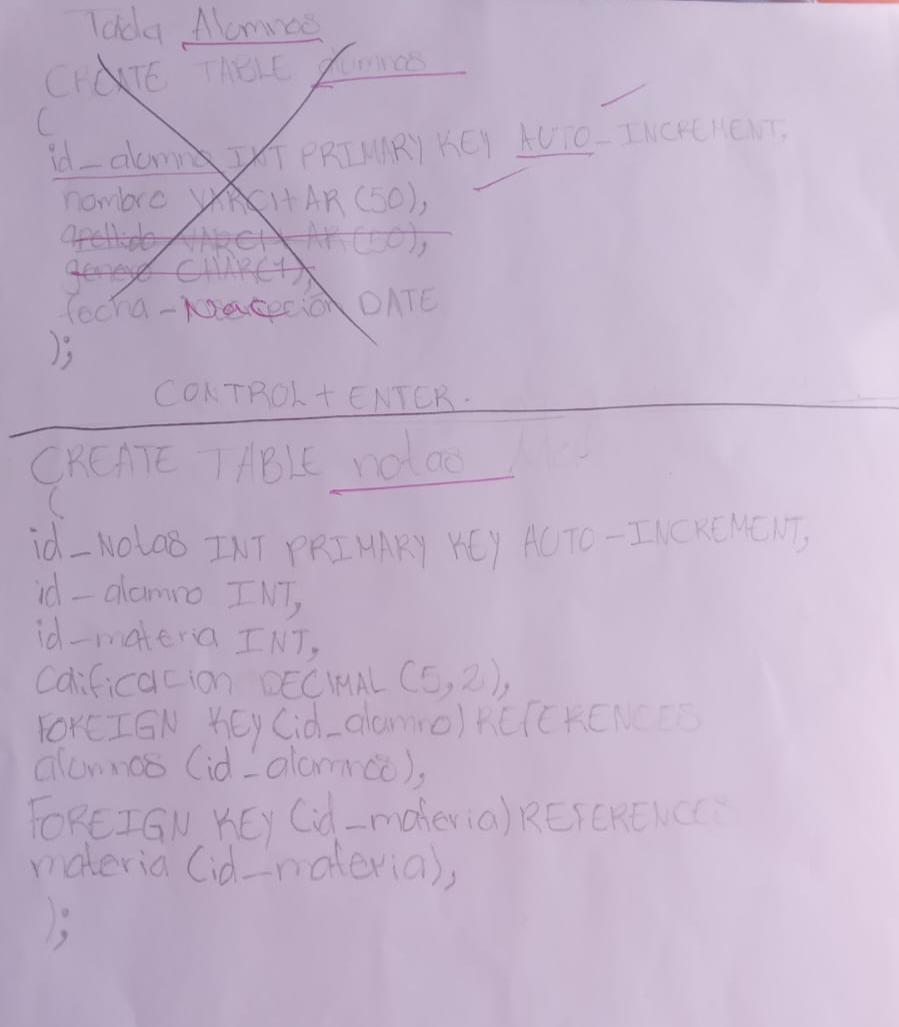 Tabla Alumnos
CREATE TABLE alumnos
(
id_alumno INT PRIMARY KEY AUTO_INCREMENT,
nombre VARCHAR (50),
apellido VARCHAR (50),
genero CHAR(1),
fecha- DATE
);
CONTROL + ENTER.
CREATE TABLE notas
(
id_Notas INT PRIMARY KEY AUTO-INCREMENT,
id-alumno INT,
id-materia INT,
Calificacion DECIMAL (5,2),
FOREIGN KEY (id_alumno) REFERENCES
alumnos (id_alumnos),
FOREIGN KEY (id_materia) REFERENCES
materia (id_materia),
);